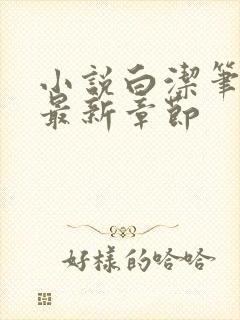 小説白潔筆
最新章節
好樣的哈哈